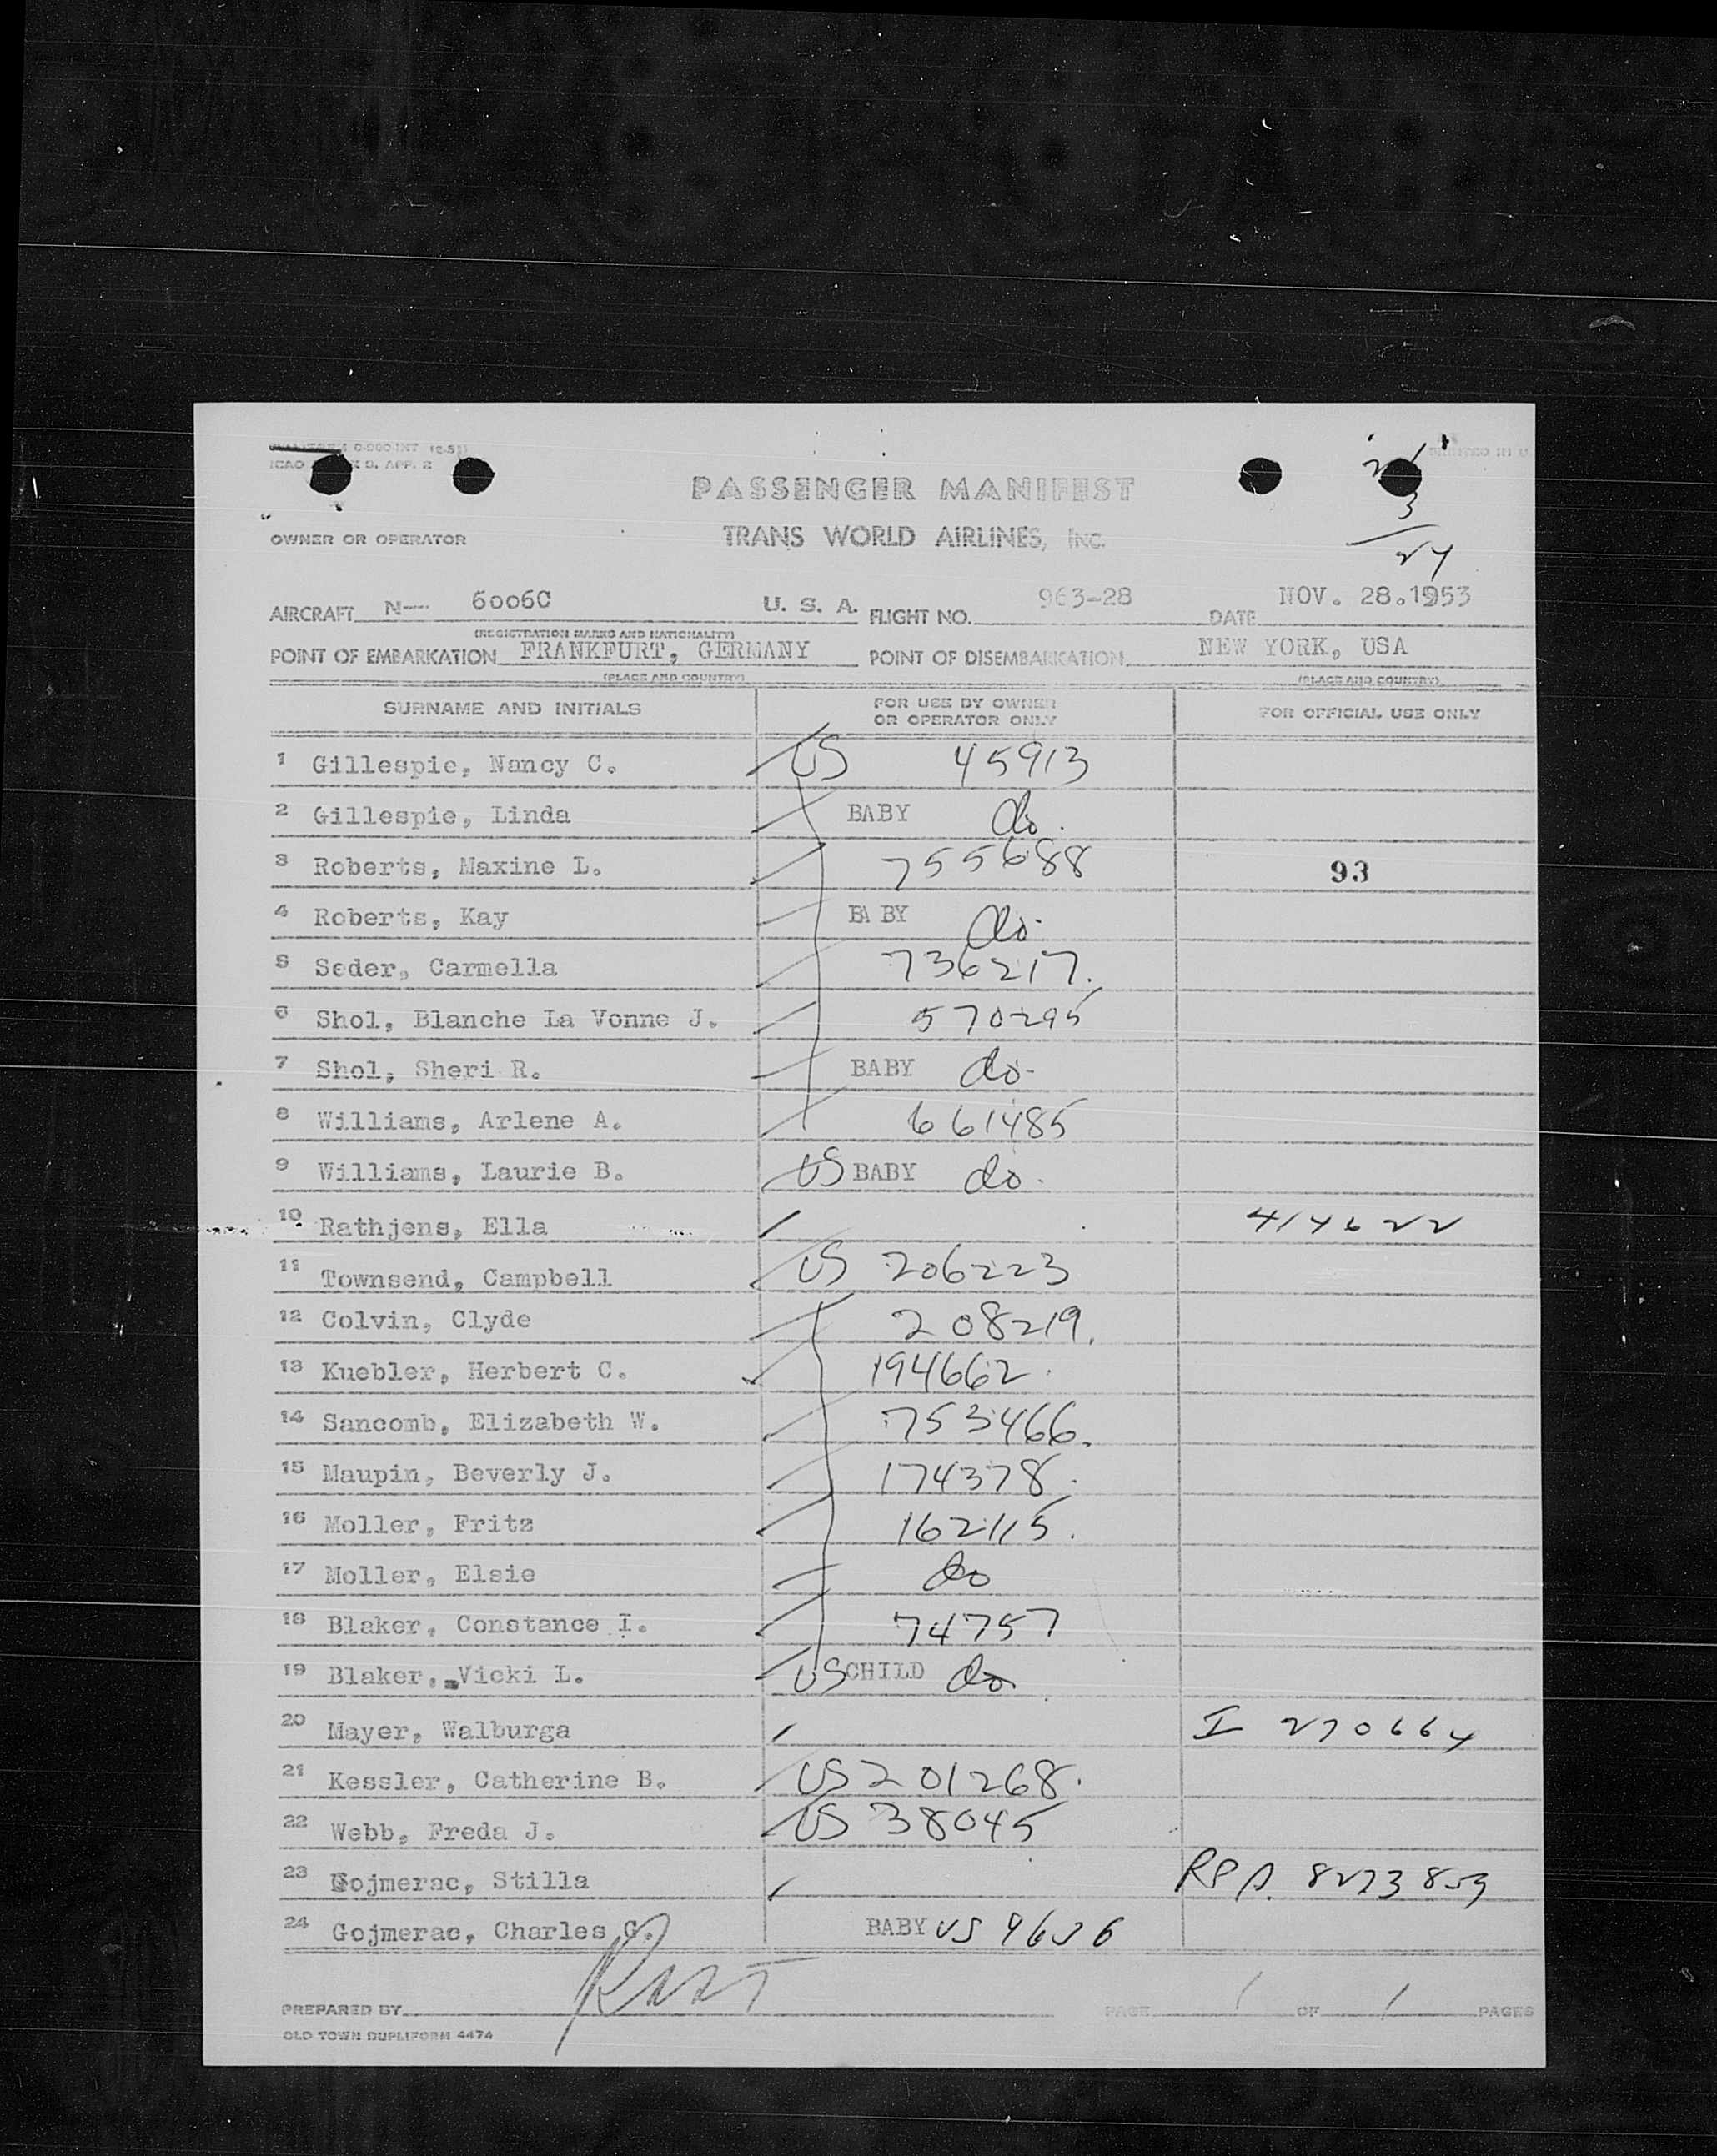 ICAO D. APP. 2
PASSENGER MANIFEST
OWNER OR OPERATOR
TRANS WORLD AIRLINES, INC.
21
3
24
AIRCRAFT N— 6006C U. S. A. FLIGHT NO. 963-28 DATE NOV. 28.1953
(REGISTRATION MARKS AND NATIONALITY)
POINT OF EMBARKATION FRANKFURT, GERMANY POINT OF DISEMBARKATION NEW YORK, USA
(PLACE AND COUNTRY) (PLACE AND COUNTRY)
SURNAME AND INITIALS FOR USE BY OWNER OR OPERATOR ONLY FOR OFFICIAL USE ONLY
1 Gillespie, Nancy C. US 45913
2 Gillespie, Linda BABY do.
3 Roberts, Maxine L. 755688 93
4 Roberts, Kay BABY do.
5 Seder, Carmella 736217.
6 Shol, Blanche La Vonne J. 570295
7 Shol, Sheri R. BABY do.
8 Williams, Arlene A. 661485
9 Williams, Laurie B. US BABY do.
10 Rathjens, Ella 414622
11 Townsend, Campbell US 206223
12 Colvin, Clyde 208219.
13 Kuebler, Herbert C. 194662.
14 Sancomb, Elizabeth W. 753466.
15 Maupin, Beverly J. 174378.
16 Moller, Fritz 162115.
17 Moller, Elsie do
18 Blaker, Constance I. 74757
19 Blaker, Vicki L. US CHILD do
20 Mayer, Walburga I 270664
21 Kessler, Catherine B. US 201268.
22 Webb, Freda J. US 38045
23 Gojmerac, Stilla
24 Gojmerac, Charles G. BABY US
PREPARED BY PAGE 1 OF 1 PAGES
OLD TOWN DUPLIFORM 4474